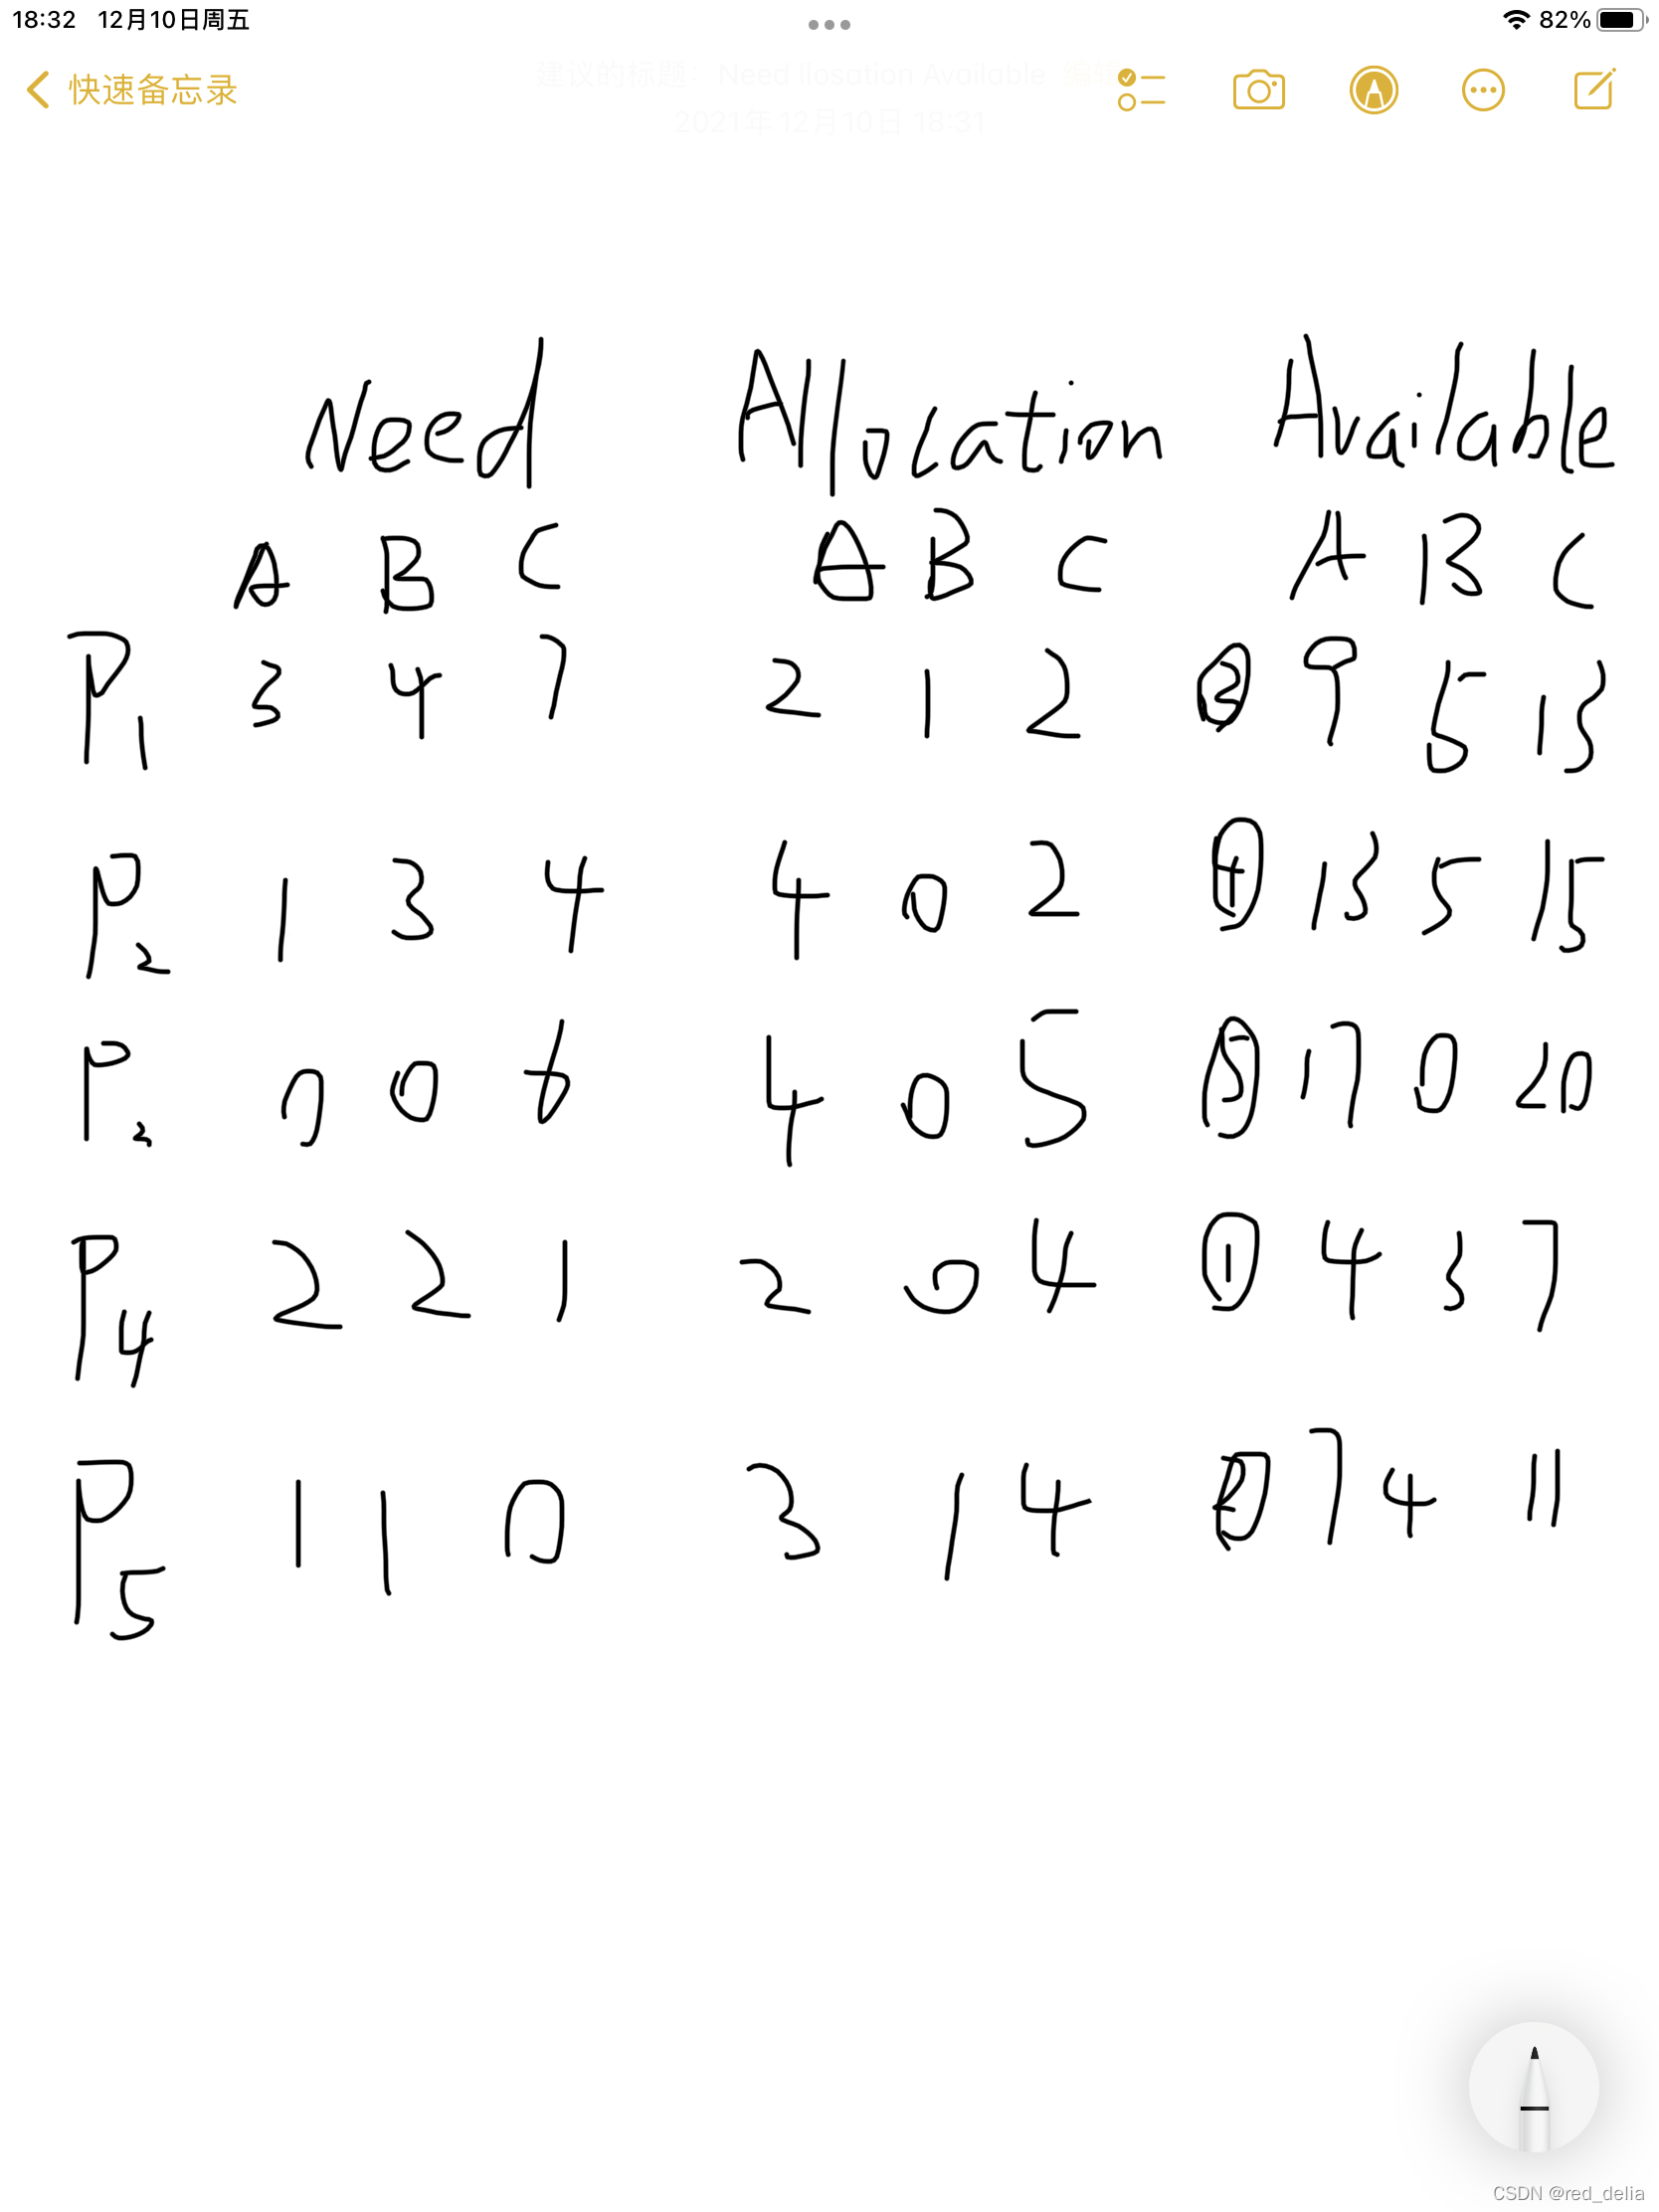 18:32 12月10日周五 82%
快速备忘录
建议的标题: Need llosation Available 编辑
2021年12月10日 18:31
Need Allocation Available
A B C A B C A B C
P1 3 4 7 2 1 2 ③ 9 5 13
P2 1 3 4 4 0 2 ④ 13 5 15
P3 0 0 6 4 0 5 ⑤ 17 0 20
P4 2 2 1 2 0 4 ① 4 3 7
P5 1 1 0 3 1 4 ② 7 4 11
CSDN @red_delia